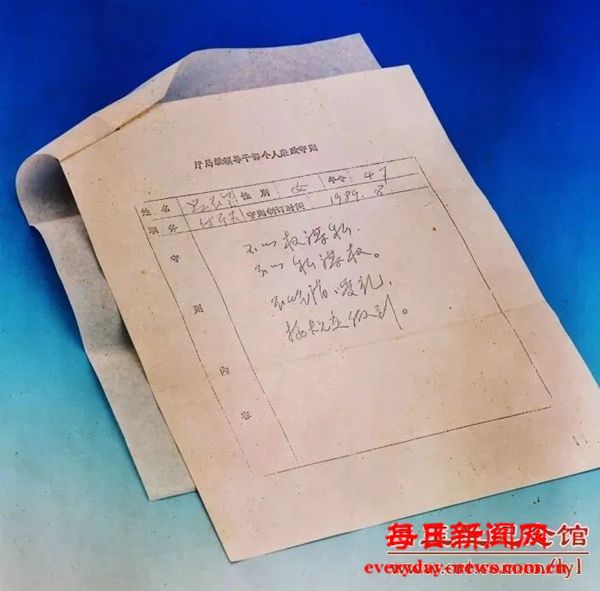 厅局级领导干部个人廉政守则
姓名 性别 女 年令 47
职务 守则制订时间 1989.8.
守则内容
不以权谋私，
不以私谋权。
不吃请、受礼，
按规定做到。
每日新闻网 馆
everyday-news.com.cn /lyl